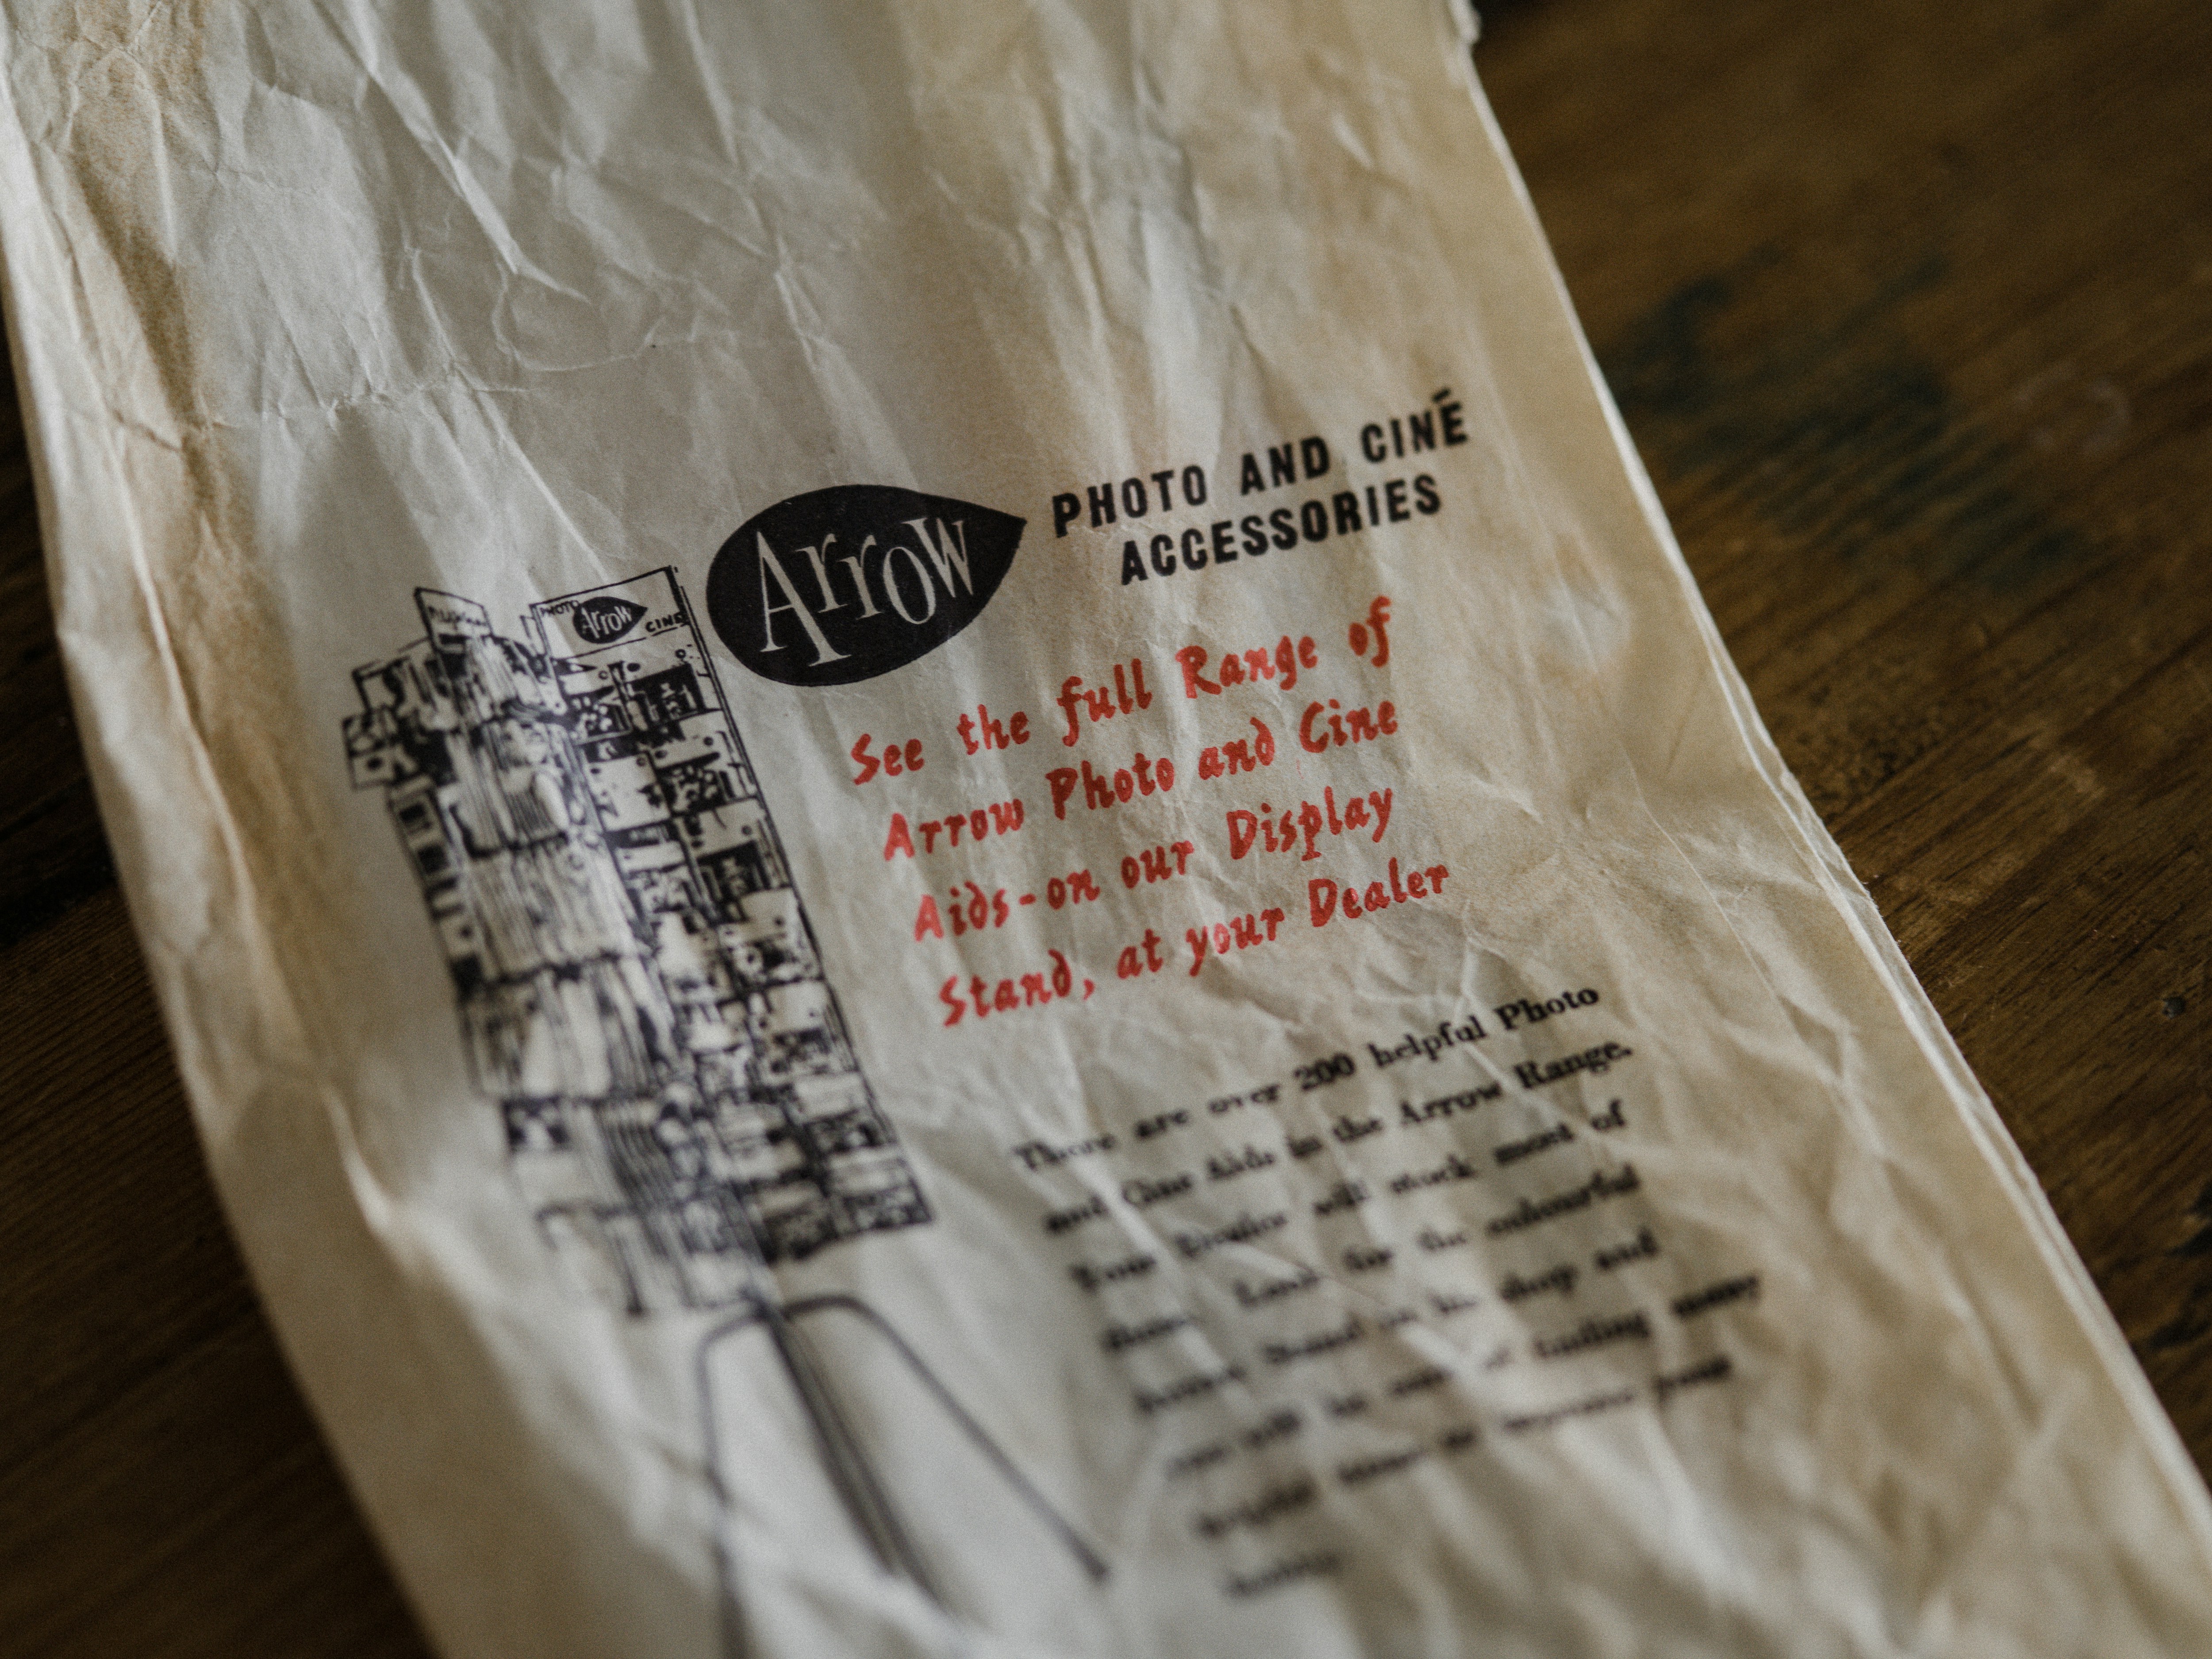 Arrow
PHOTO AND CINÉ
ACCESSORIES
PHOTO Arrow CINE
See the full Range of
Arrow Photo and Cine
Aids-on our Display
Stand, at your Dealer
There are over 200 helpful Photo
and Cine Aids in the Arrow Range.
Your Dealer will stock most of
them. Look for the colourful
Arrow Stand in his shop and
you will be sure of finding many
helpful items to improve your
hobby.